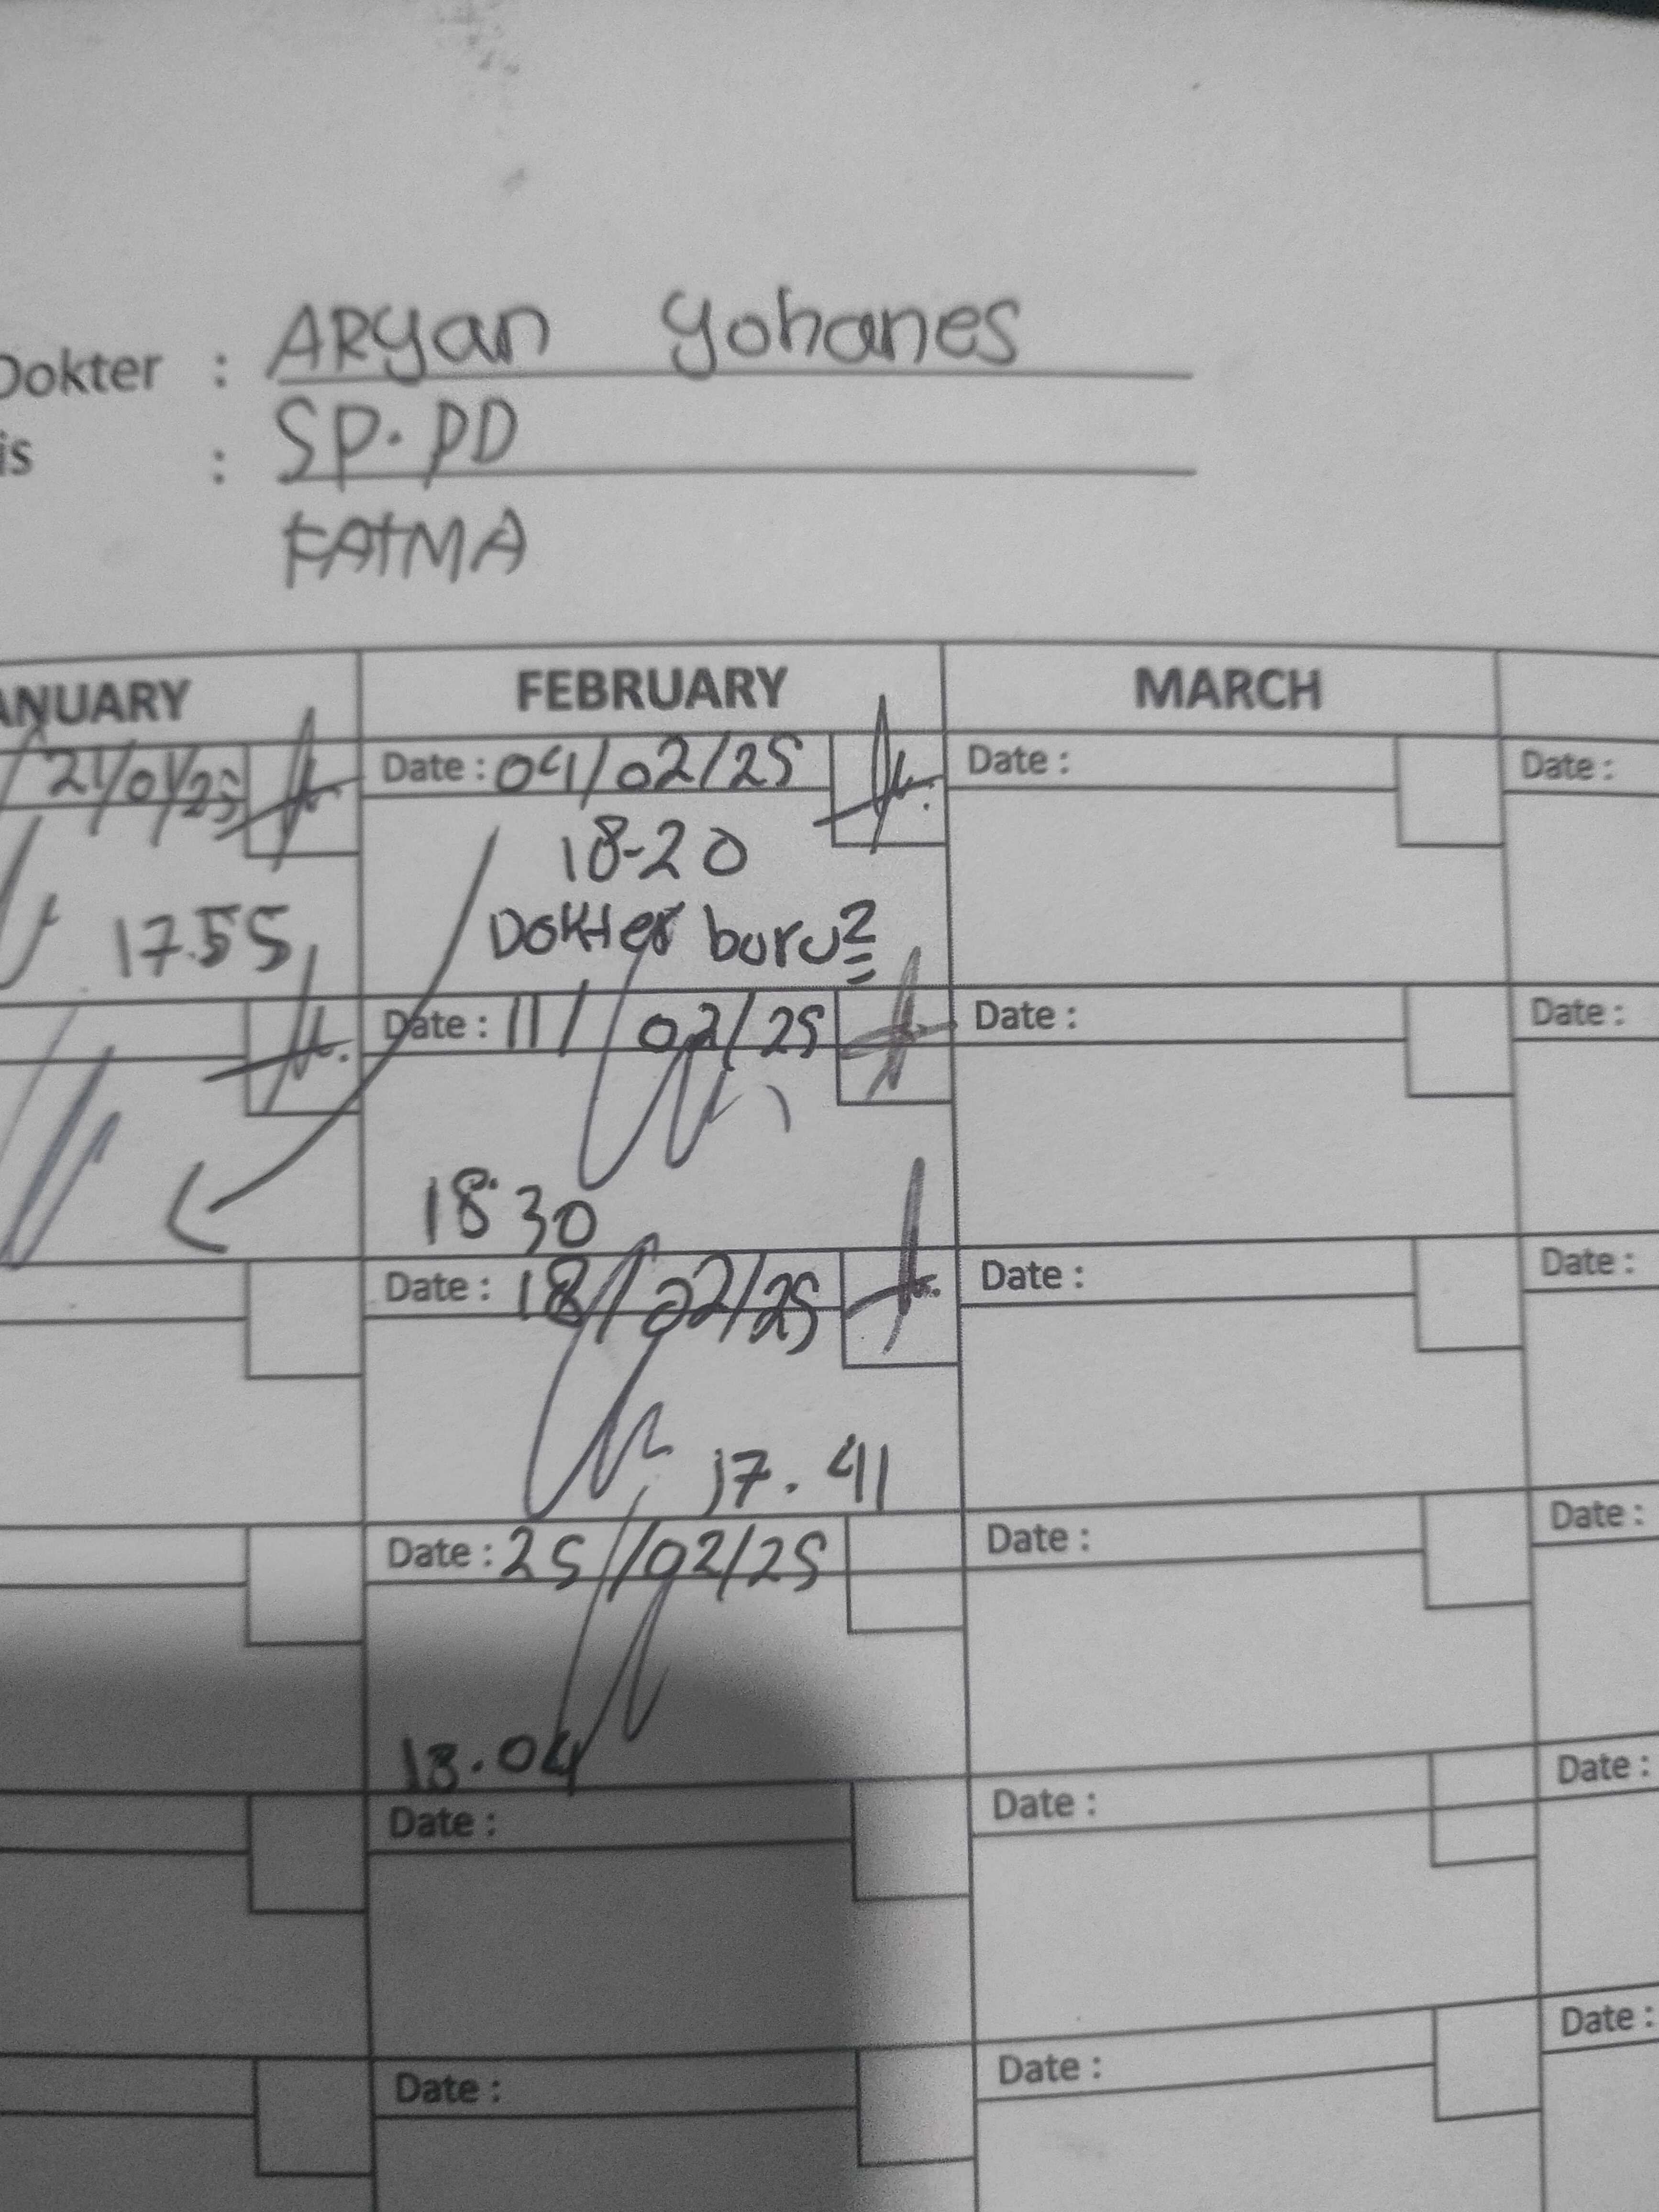 Dokter : ARyan Yohanes
is : SP.PD
FATMA
ANUARY FEBRUARY MARCH
21/01/25 Date : 04/02/25 Date : Date :
17.55 18-20
Dokter buru2
Date : 11/02/25 Date : Date :
18.30
Date : 18/02/25 Date : Date :
17.41
Date : 25/02/25 Date : Date :
18.04
Date : Date : Date :
Date : Date : Date :